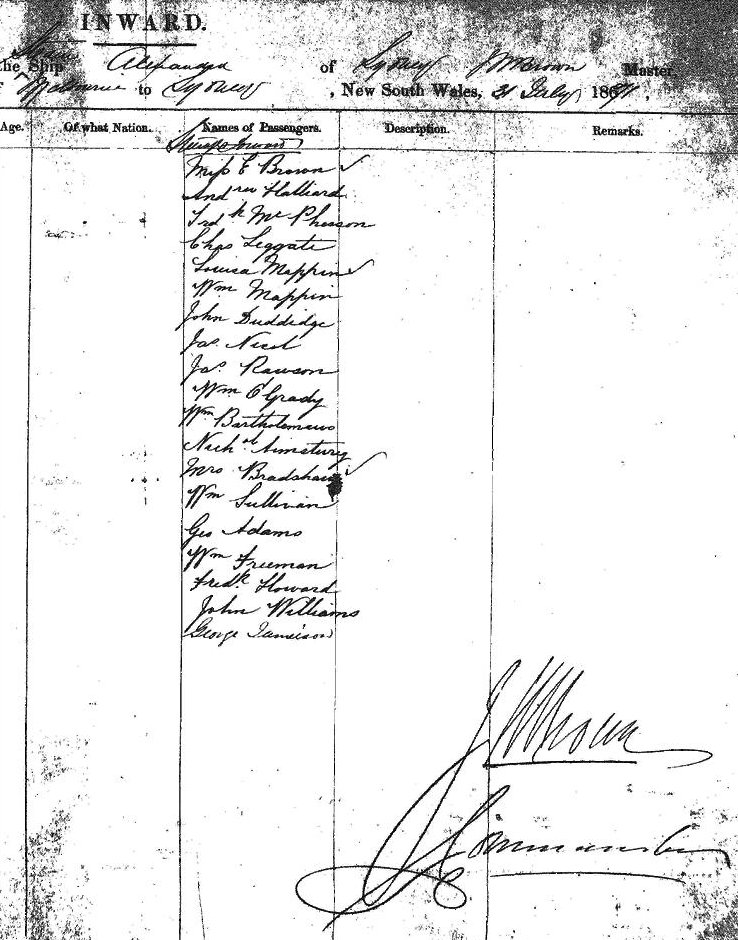 INWARD.
the Ship Alexandra of Sydney J W Brown Master,
Melbourne to Sydney, New South Wales, 31 July 1871,
Age. Of what Nation. Names of Passengers. Description. Remarks.
Miss E Brown ✓
Andrew Halliard
Fredk McPherson
Chas Leggate
Louisa Mappin ✓
Wm Mappin
John Duddidge
Jas Nicol
Jas Rawson
Wm O'Grady
Wm Bartholemaws
Nichol
Mrs Bradshaw ✓
Wm Sullivan
Geo Adams
Wm Freeman
Fredk Howard
John Williams
George Jameison
J W Brown
Commander